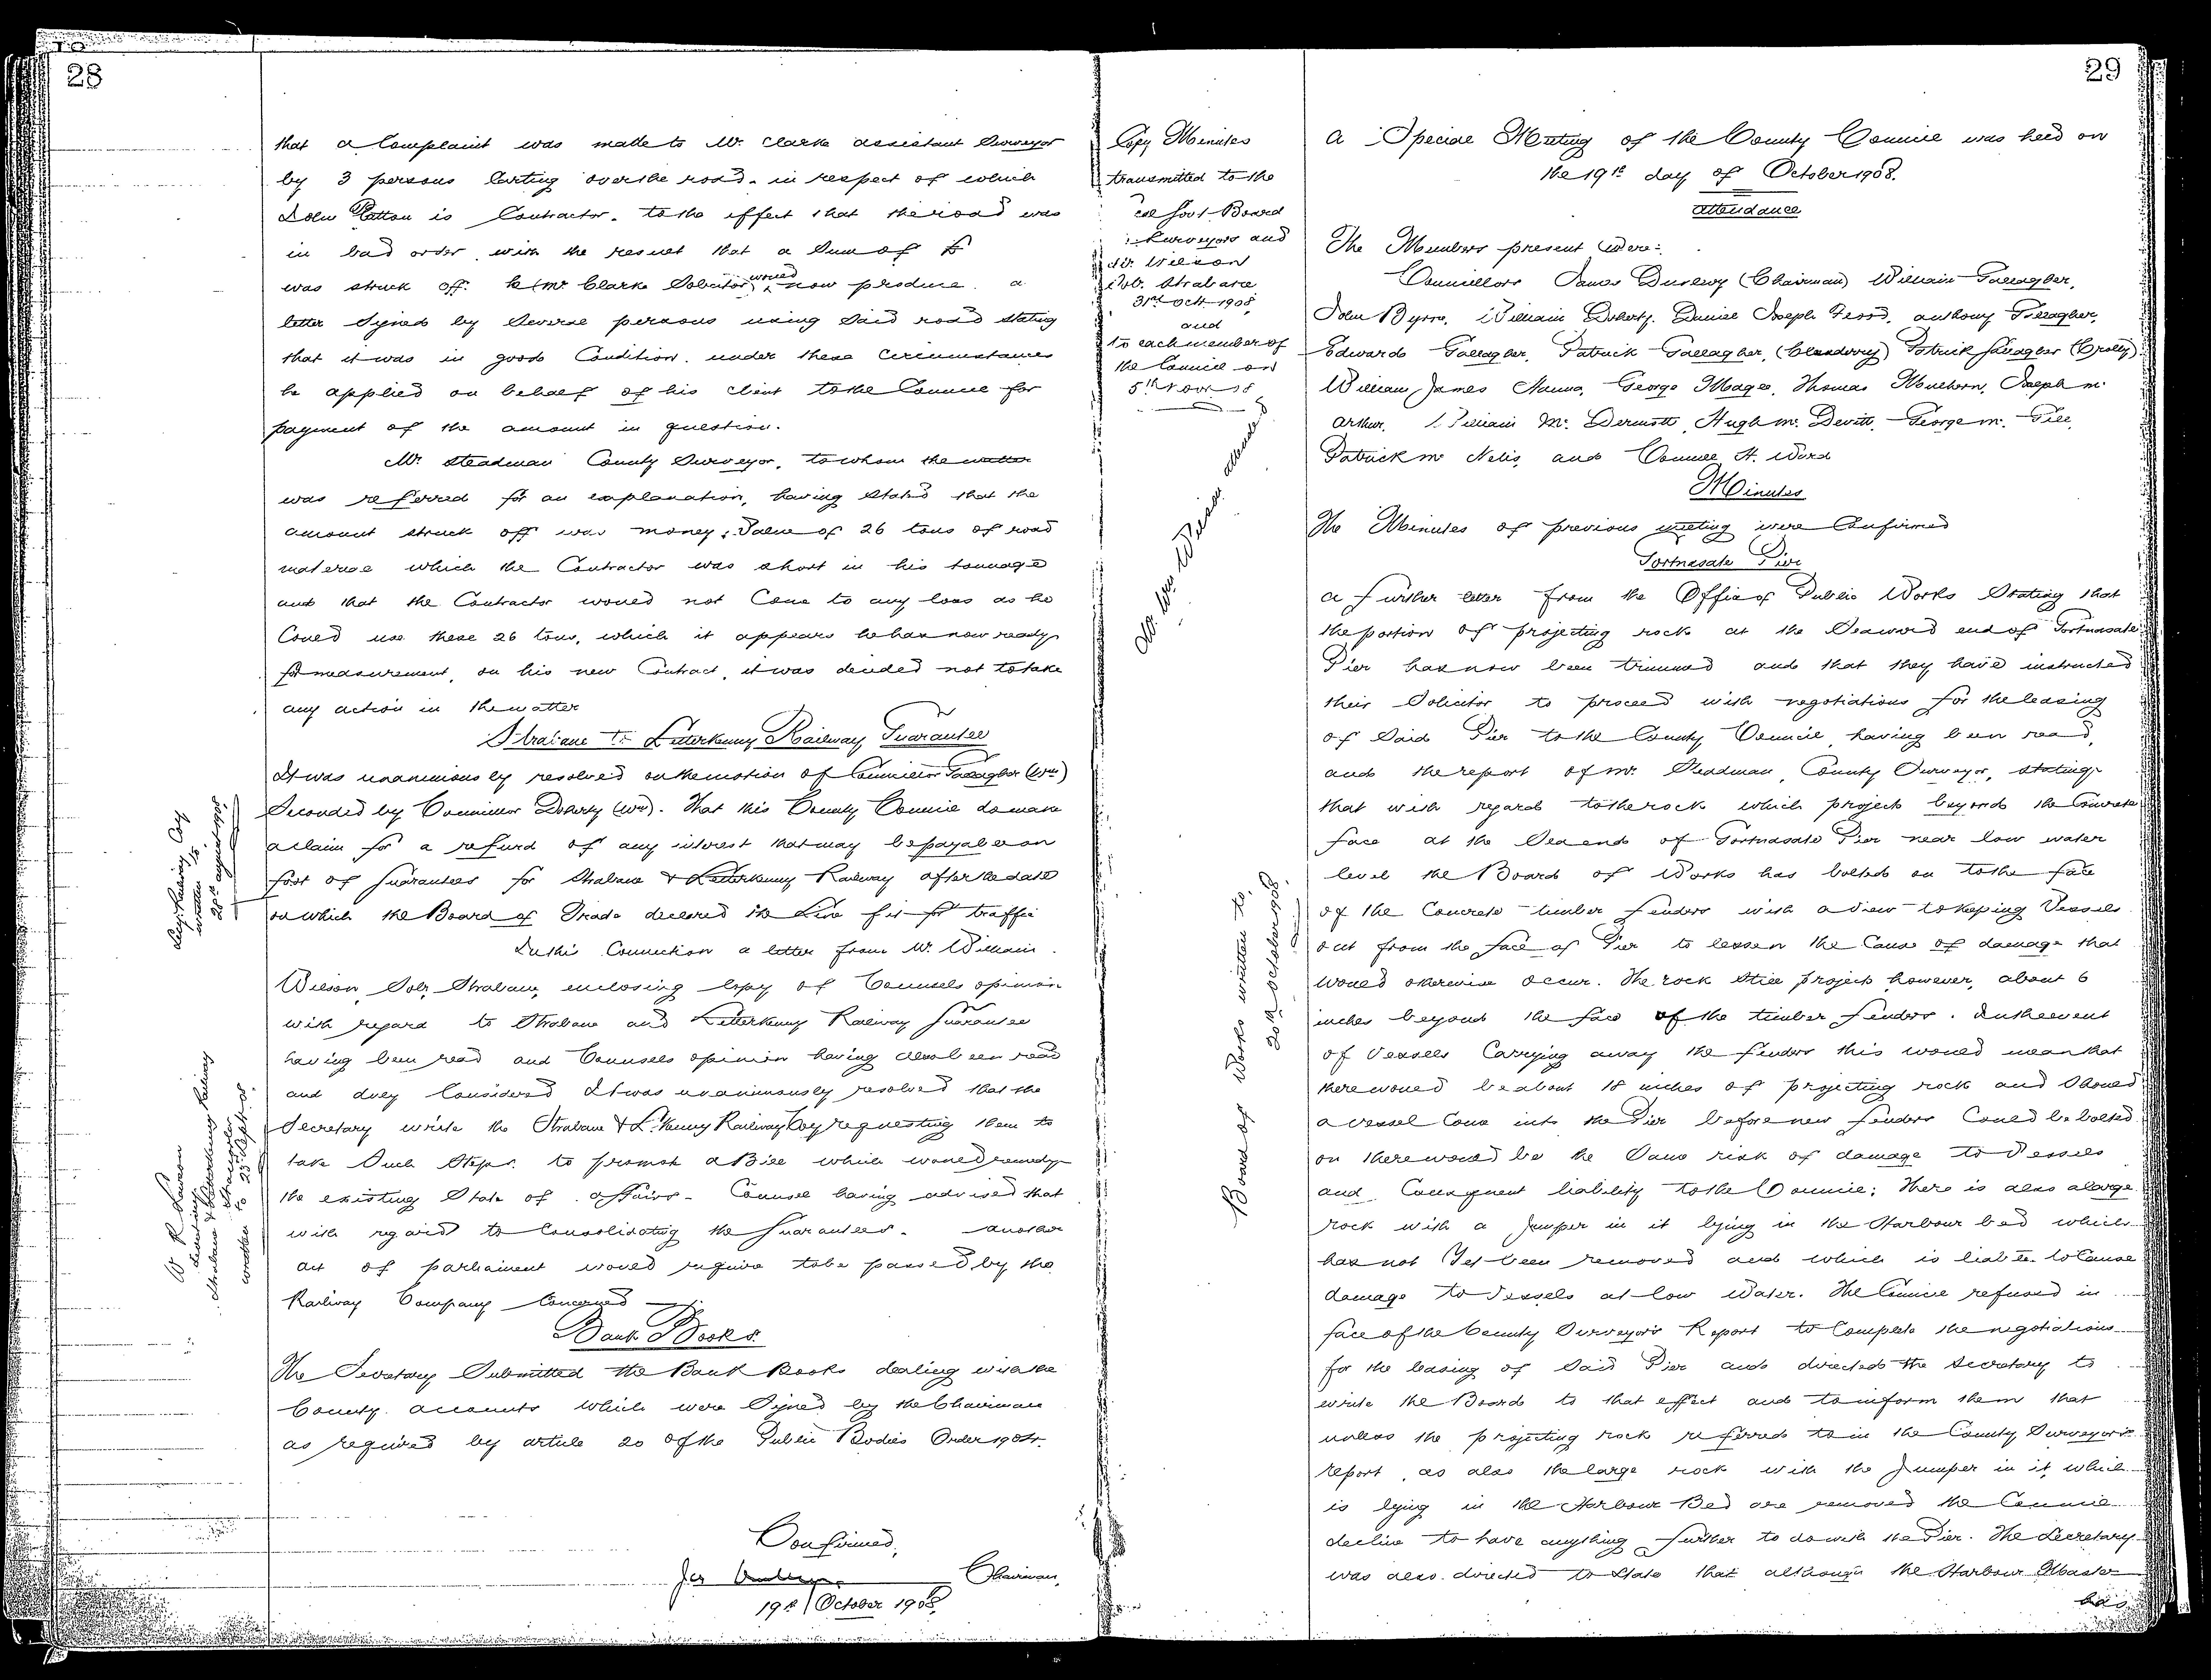 28
that a Complaint was made to Mr. Clarke assistant Surveyor
by 3 persons Carting over the road in respect of which
John Patton is Contractor, to the effect that the road was
in bad order with the result that a Sum of £
was struck off. he (Mr Clarke Solicitor) would now produce a
letter Signed by Several persons using Said road Stating
that it was in good Condition. under these Circumstances
he applied on behalf of his client to the Council for
payment of the amount in question.
Mr. Steadman County Surveyor, to whom the matter
was referred for an explanation, having Stated that the
amount struck off was money value of 26 tons of road
material which the Contractor was short in his tonnage
and that the Contractor would not Come to any loss as he
Could use these 26 tons, which it appears he has now ready
for measurement, on his new Contract, it was decided not to take
any action in the matter
Strabane to Letterkenny Railway Guarantee
It was unanimously resolved on the motion of Councillor Gallagher (Wm)
Seconded by Councillor Doherty (Wm). That this County Council do make
a claim for a refund of any interest that may be payable on
foot of Guarantees for Strabane & Letterkenny Railway after the date
on which the Board of Trade declared the Line fit for traffic
In this Connection a letter from Mr. William
Wilson, Solr. Strabane, enclosing Copy of Counsels opinion
with regard to Strabane and Letterkenny Railway Guarantee
having been read and Counsels opinion having also been read
and duly Considered It was unanimously resolved that the
Secretary write the Strabane & L.kenny Railway Coy requesting them to
take Such Steps to promote a Bill which would remedy
the existing State of affairs - Counsel having advised that
with regard to Consolidating the Guarantees - another
act of parliament would require to be passed by the
Railway Company Concerned
Bank Books
The Secretary Submitted the Bank Books dealing with the
County accounts which were Signed by the Chairman
as required by article 20 of the Public Bodies Order 1904.
Confirmed,
Chairman,
19th October 1908.
Railway Coy
written to
28th august 1908
Strabane & Letterkenny Railway
written to 25 Sept 08
Copy Minutes
transmitted to the
Govt Board
Surveyors and
Wilson
Strabane
31st Oct 1908
and
to each member of
the Council on
5th Novr 08
Board of Works written to,
20th October 1908.
29
A Special Meeting of the County Council was held on
the 19th day of October 1908.
Attendance
The Members present Were:
Councillors James Dunlevy (Chairman) William Gallagher,
John Byrne, William Doherty, Daniel Joseph anthony Gallagher,
Edward Gallagher, Patrick Gallagher, (Cleendowey) Patrick Gallagher (Crolly)
William James Hanna, George Magee, Thomas Joseph Mc
Arthur, William McDermott, Hugh McDevitt, George Mc Gill,
Patrick Mc Nelis, and Connell H. Ward
Minutes
The Minutes of previous meeting were Confirmed
Portnasate Pier
A further letter from the Office of Public Works Stating that
the portion of projecting rock at the Seaward end of Portnasate
Pier has now been trimmed and that they have instructed
their Solicitor to proceed with negotiations for the leasing
of Said Pier to the County Council having been read,
and the report of Mr. Steadman, County Surveyor, stating
that with regard to the rock which projects beyond the Concrete
face at the Sea end of Portnasate Pier near low water
level the Board of Works has bolted on to the face
of the Concrete timber fenders with a view to keeping Vessels
out from the face of Pier to lessen the Cause of damage that
would otherwise occur. The rock Still projects however, about 6
inches beyond the face of the timber fenders. In the event
of Vessels Carrying away the fenders this would mean that
there would be about 18 inches of projecting rock and Should
a vessel Come into the Pier before new fenders Could be bolted
on there would be the Same risk of damage to Vessels
and Consequent liability to the Council; There is also a large
rock with a Jumper in it lying in the Harbour bed which
has not Yet been removed and which is liable to Cause
damage to Vessels at low Water. The Council refused in
face of the County Surveyor's Report to Complete the negotiations
for the leasing of Said Pier and directed the Secretary to
write the Board to that effect and to inform them that
unless the projecting rock referred to in the County Surveyor's
report, as also the large rock with the Jumper in it which
is lying in the Harbour Bed are removed the Council
decline to have anything further to do with the Pier. The Secretary
was also directed to State that although the Harbour Master
has